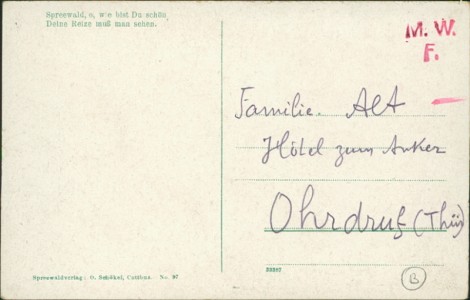 Spreewald, o, wie bist Du schön,
Deine Reize muß man sehen.
M. W.
F.
Familie. Alt
Hôtel zum Anker
Ohrdruf (Thür)
Spreewaldverlag: O. Schökel, Cottbus. No. 97
B